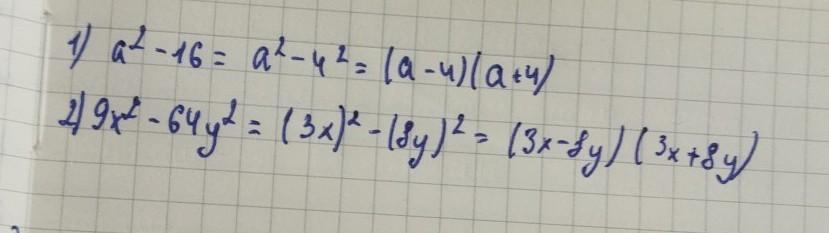 1) a² - 16 = a² - 4² = (a - 4)(a + 4)
2) 9x² - 64y² = (3x)² - (8y)² = (3x - 8y)(3x + 8y)